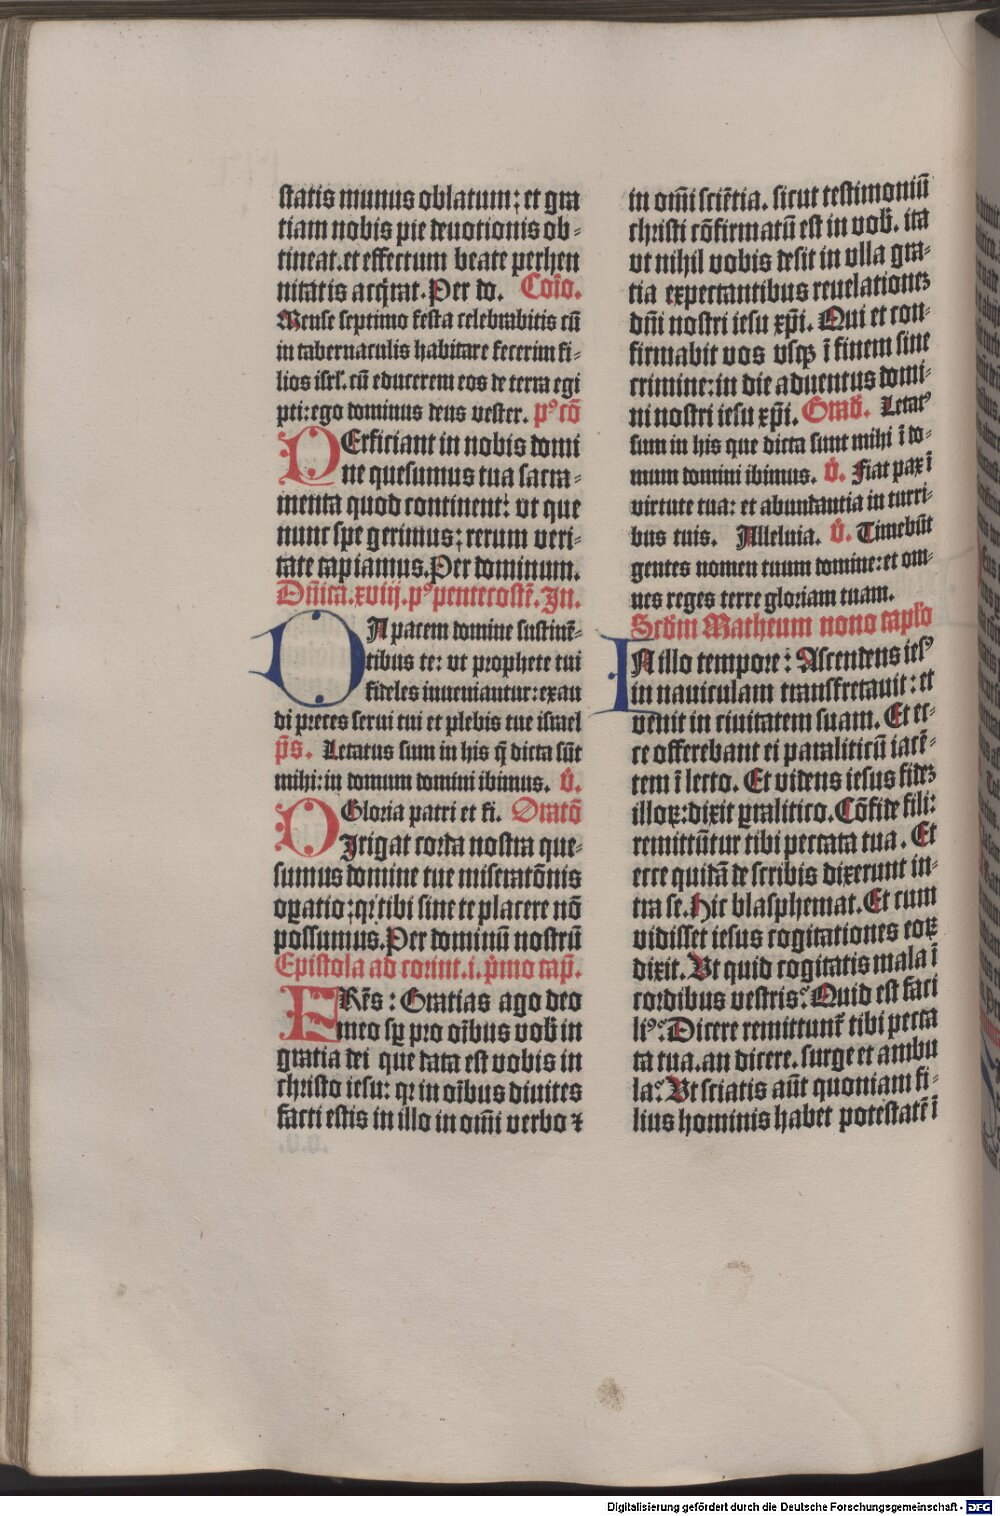 statis munus oblatum; et gra
tiam nobis pie deuotionis ob-
tineat. et effectum beate perhen
nitatis acq̄rat. Per do. Cōio.
Mense septimo festa celebrabitis cū
in tabernaculis habitare fecerim fi-
lios isrl'. cū educerem eos de terra egi
pti: ego dominus deus vester. pꝰ cō
PErficiant in nobis domi
ne quesumus tua sacra-
menta quod continent: vt que
nunc spe gerimus; rerum veri-
tate capiamus. Per dominum.
Dn̄ica. xviij. pꝰ pentecostē. In.
DA pacem domine sustinē-
tibus te: vt prophete tui
fideles inueniantur: exau
di preces serui tui et plebis tue israel
p̄s. Letatus sum in his q̄ dicta sūt
mihi: in domum domini ibimus. v̄.
Gloria patri et fi. Oratō
DIrigat corda nostra que-
sumus domine tue miseratōnis
oꝑatio; qꝛ tibi sine te placere nō
possumus. Per dominū nostrū
Epistola ad corint. i. p̄mo cap̄.
FRēs: Gratias ago deo
meo sꝑ pro oībus vob̄ in
gratia dei que data est vobis in
christo iesu: qꝛ in oībus diuites
facti estis in illo in om̄i verbo ⁊
in om̄i sciētia. sicut testimoniū
christi cōfirmatū est in vob̄. ita
vt nihil vobis desit in vlla gra-
tia expectantibus reuelationeꝫ
dn̄i nostri iesu xp̄i. Qui et con-
firmabit vos vsqꝫ ī finem sine
crimine: in die aduentus domi-
ni nostri iesu xp̄i. Grad̄. Letatꝰ
sum in his que dicta sunt mihi ī do-
mum domini ibimus. v̄. Fiat pax ī
virtute tua: et abundantia in turri-
bus tuis. Alleluia. v̄. Timebūt
gentes nomen tuum domine: et om-
nes reges terre gloriam tuam.
Scd̄m Matheum nono capl'o
IN illo tempore: Ascendens iesꝰ
in nauiculam transfretauit: et
venit in ciuitatem suam. Et ec-
ce offerebant ei paraliticū iacē-
tem ī lecto. Et videns iesus fideꝫ
illoꝝ: dixit ꝑalitico. Cōfide fili:
remittūtur tibi peccata tua. Et
ecce quidā de scribis dixerunt in-
tra se. Hic blasphemat. Et cum
vidisset iesus cogitationes eoꝝ
dixit. Vt quid cogitatis mala ī
cordibus vestris? Quid est faci
liꝰ? Dicere remittunt̄ tibi pecca
ta tua. an dicere. surge et ambu
la? Vt sciatis aūt quoniam fi-
lius hominis habet potestatē ī
Digitalisierung gefördert durch die Deutsche Forschungsgemeinschaft - DFG